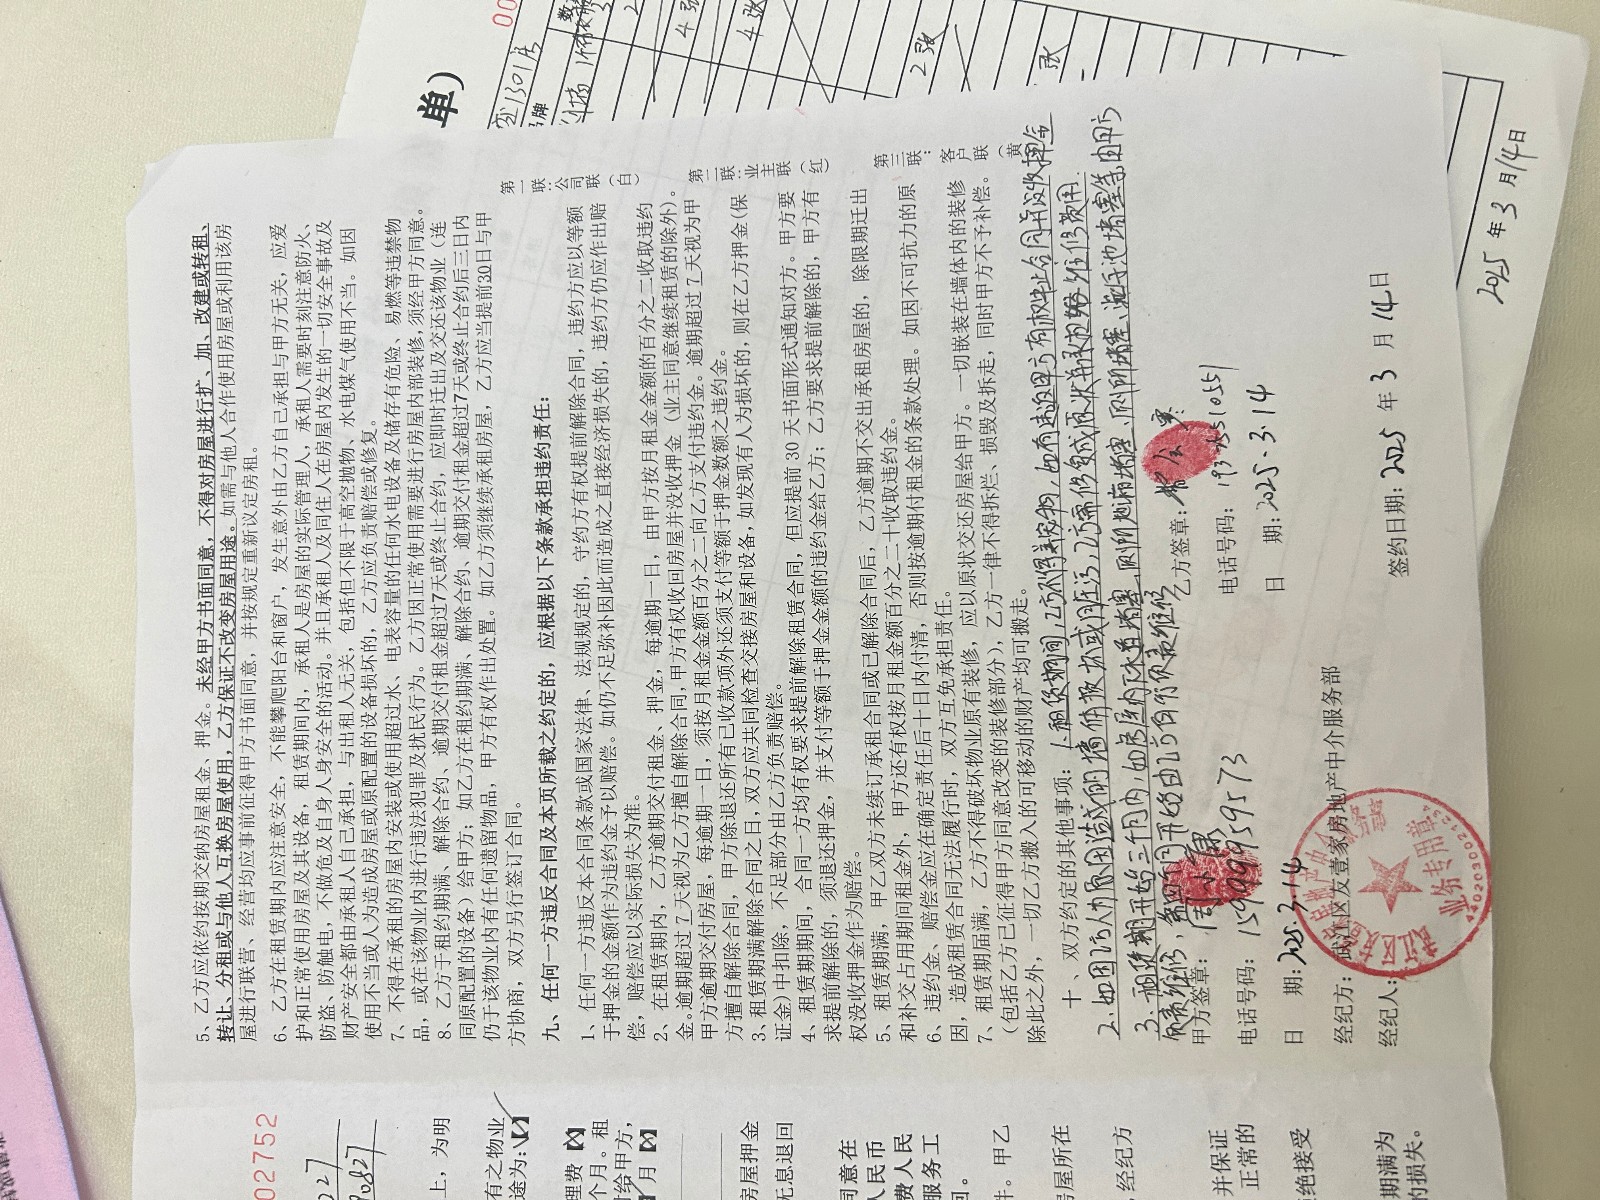 5、乙方应依约按期交纳房屋租金、押金。未经甲方书面同意，不得对房屋进行扩、加、改建或转租、
转让、分租或与他人互换房屋使用，乙方保证不改变房屋用途。如需与他人合作使用房屋或利用该房
屋进行联营、经营均应事前征得甲方书面同意，并按规定重新议定房租。
6、乙方在租赁期内应注意安全，不能攀爬阳台和窗户，发生意外由乙方自己承担与甲方无关，应爱
护和正常使用房屋及其设备，租赁期间内，承租人是房屋的实际管理人，承租人需要时刻注意防火、
防盗、防触电，不做危及自身人身安全的活动。并且承租人及同住人在房屋内发生的一切安全事故及
财产安全都由承租人自己承担，与出租人无关，包括但不限于高空抛物、水电煤气使用不当。如因
使用不当或人为造成房屋或原配置的设备损坏的，乙方应负责赔偿或修复。
7、不得在承租的房屋内安装或使用超过水、电表容量的任何水电设备及储存有危险、易燃等违禁物
品，或在该物业内进行违法犯罪及扰民行为。乙方因正常使用需要进行房屋内部装修，须经甲方同意。
8、乙方于租约期满、解除合约、逾期交付租金超过7天或终止合约，应即时迁出及交还该物业（连
同原配置的设备）给甲方；如乙方在租约期满、解除合约、逾期交付租金超过7天或终止合约后三日内
仍于该物业内有任何遗留物品，甲方有权作出处置。如乙方须继续承租房屋，乙方应当提前30日与甲
方协商，双方另行签订合同。
九、任何一方违反合同及本页所载之约定的，应根据以下条款承担违约责任：
1、任何一方违反本合同条款或国家法律、法规规定的，守约方有权提前解除合同，违约方应以等额
于押金的金额作为违约金予以赔偿。如仍不足弥补因此而造成之直接经济损失的，违约方仍应作出赔
偿，赔偿应以实际损失为准。
2、在租赁期内，乙方逾期交付租金、押金，每逾期一日，由甲方按月租金金额的百分之二收取违约
金。逾期超过 7 天视为乙方擅自解除合同，甲方有权收回房屋并没收押金（业主同意继续租赁的除外）。
甲方逾期交付房屋，每逾期一日，须按月租金金额百分之二向乙方支付违约金。逾期超过 7 天视为甲
方擅自解除合同，甲方除退还所有已收款项外还须支付等额于押金数额之违约金。
3、租赁期满解除合同之日，双方应共同检查交接房屋和设备，如发现有人为损坏的，则在乙方押金(保
证金)中扣除，不足部分由乙方负责赔偿。
4、租赁期期间，合同一方均有权要求提前解除租赁合同，但应提前 30 天书面形式通知对方。甲方要
求提前解除的，须退还押金，并支付等额于押金金额的违约金给乙方；乙方要求提前解除的，甲方有
权没收押金作为赔偿。
5、租赁期满，甲乙双方未续订承租合同或已解除合同后，乙方逾期不交出承租房屋的，除限期迁出
和补交占用期间租金外，甲方还有权按月租金额百分之二十收取违约金。
6、违约金、赔偿金应在确定责任后十日内付清，否则按逾期付租金的条款处理。如因不可抗力的原
因，造成租赁合同无法履行时，双方互免承担责任。
7、租赁期届满，乙方不得破坏物业原有装修，应以原状交还房屋给甲方。一切嵌装在墙体内的装修
（包括乙方已征得甲方同意改变的装修部分），乙方一律不得拆烂、损毁及拆走，同时甲方不予补偿。
除此之外，一切乙方搬入的可移动的财产均可搬走。
十、双方约定的其他事项：1.租赁期间，乙方不得养宠物，如有违返甲方有权终止合同并没收押金
2.如因乙方人为原因造成的墙体破坏或脏污，乙方需修复成原状并承担维修费用.
3.租赁期开始三个月内，如房屋内下水道堵塞，厕所堵塞、洗手池堵塞等,由甲方
负责维修，第四个月开始由乙方自行负责维修
甲方签章：周小
电话号码：15999959573
日　期：2025.3.14
乙方签章：
电话号码：
日　期：2025.3.14
经纪方：武江区友壹家房地产中介服务部
经纪人：
签约日期：2025 年 3 月 14 日
业务专用章
第一联：公司联（白）
第二联：业主联（红）
第三联：客户联（黄
单）
1301房
2张
张
4张
4张
2025 年 3 月 14 日
02752
上，为明
有之物业
途为：
理费
个月。租
付给甲方，
月
房屋押金
无息退回
同意在
人民币
费人民
服务工
回。
件。甲乙
房屋所在
，经纪方
并保证
正常的
绝接受
期满为
的损失。